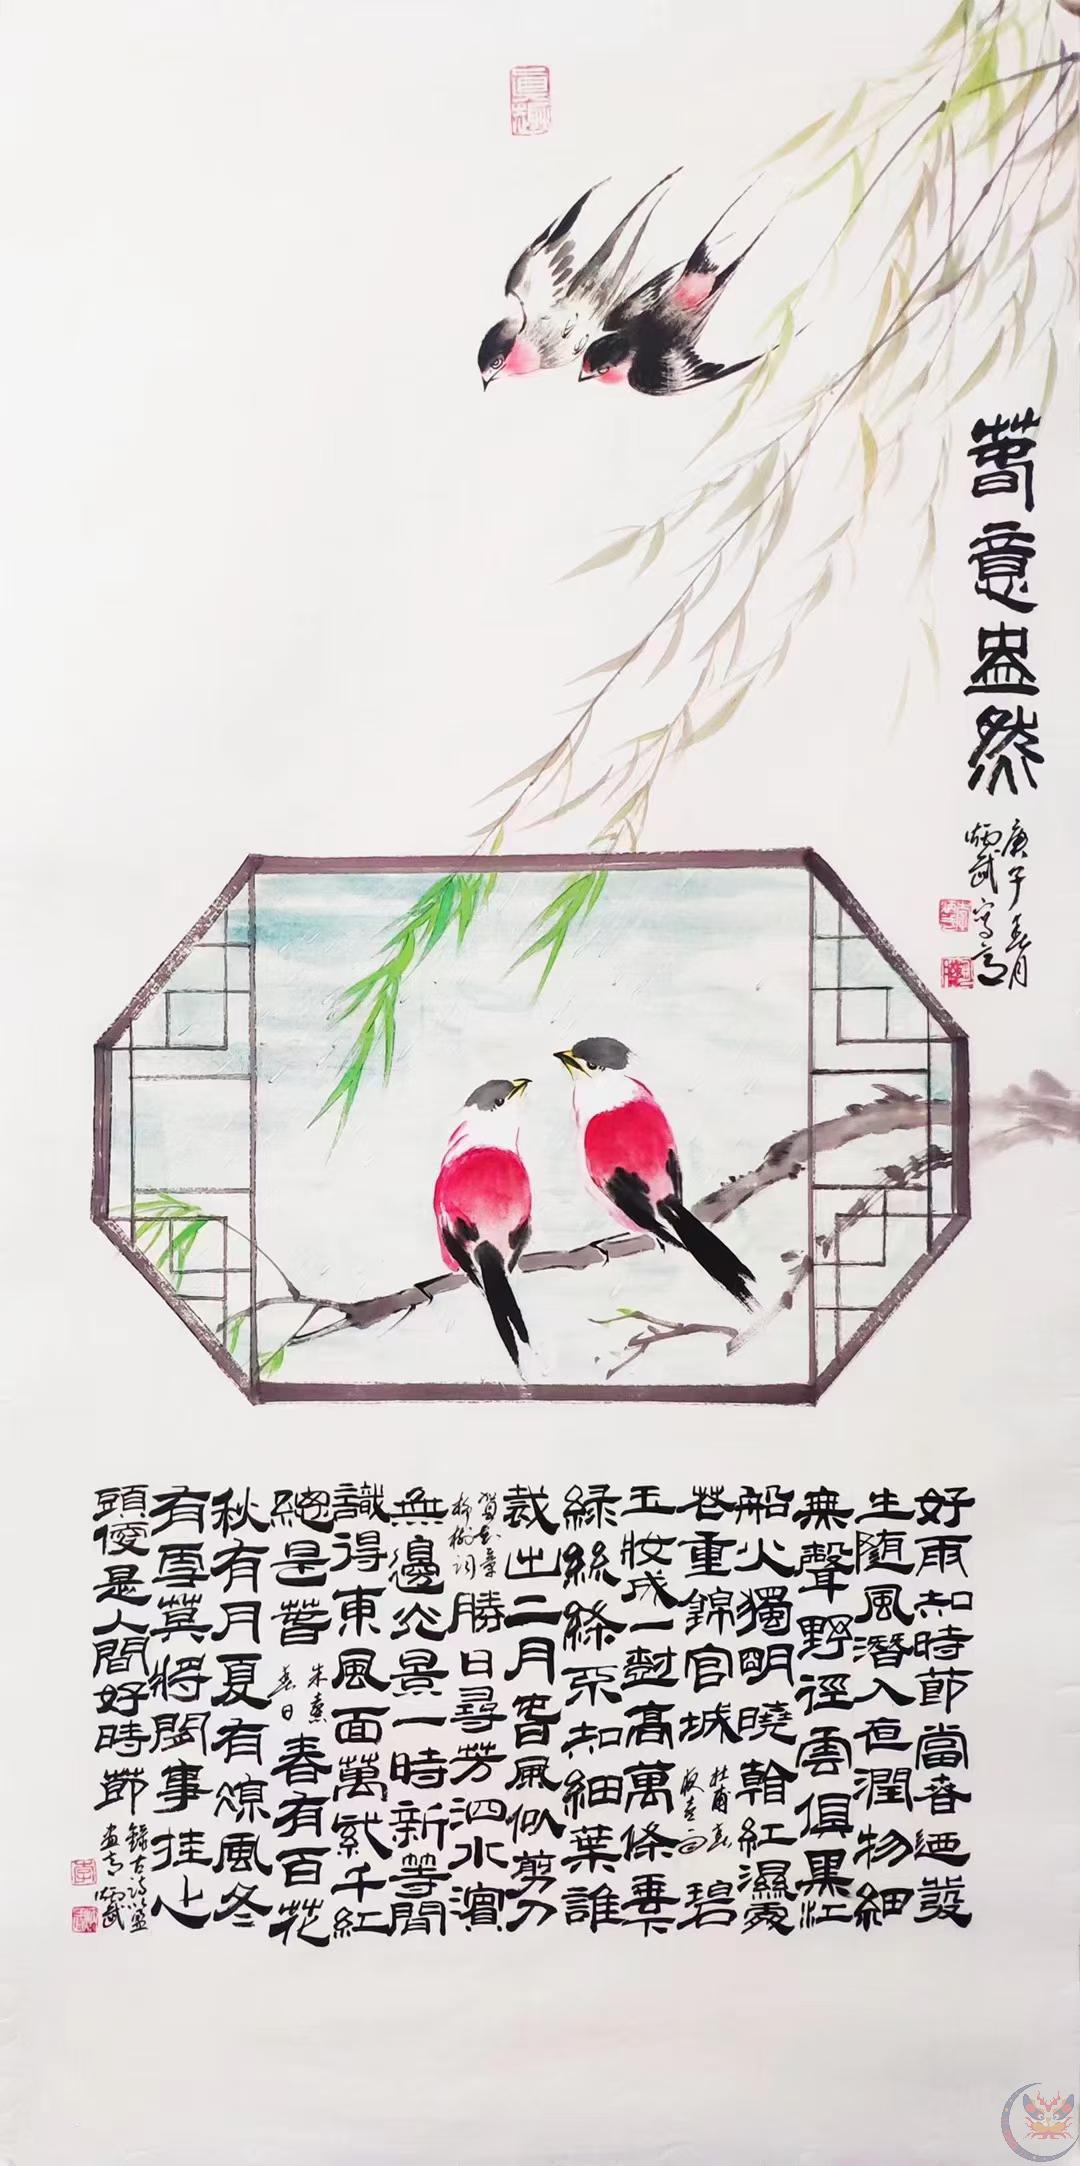 真趣
萅意盎然
庚子春月
炳武寫意
好雨知時節當春迺發
生隨風潛入夜潤物細
無聲野徑雲俱黑江
船火獨明曉看紅濕處
花重錦官城 杜甫春夜喜雨 碧
玉妝成一樹高萬條垂下
綠絲絛不知細葉誰
裁出二月萅風似剪刀
賀知章柳樹詞 勝日尋芳泗水濱
無邊光景一時新等閒
識得東風面萬紫千紅
總是萅 朱熹春日 春有百花
秋有月夏有涼風冬
有雪莫將閒事挂心
頭便是人間好時節 錄古詩以益
畫意炳武